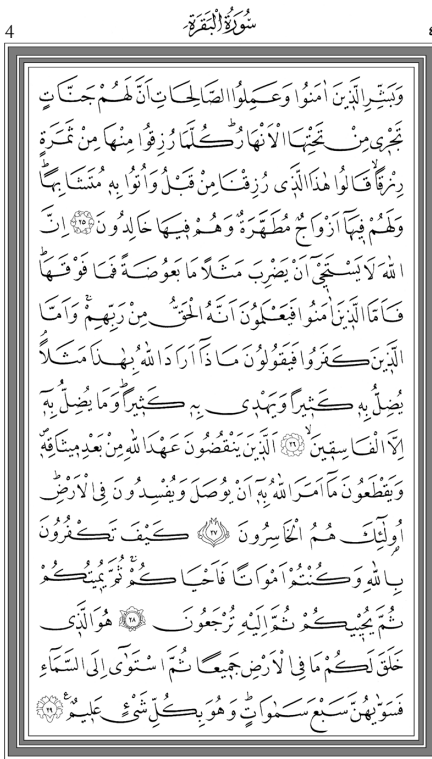 4 سُورَةُ الْبَقَرَةِ ٤
وَبَشِّرِ الَّذِينَ اٰمَنُوا وَعَمِلُوا الصَّالِحَاتِ اَنَّ لَهُمْ جَنَّاتٍ
تَجْرِى مِنْ تَحْتِهَا الْاَنْهَارُۜ كُلَّمَا رُزِقُوا مِنْهَا مِنْ ثَمَرَةٍ
رِزْقًاۙ قَالُوا هٰذَا الَّذِى رُزِقْنَا مِنْ قَبْلُ وَاُتُوا بِهٖ مُتَشَابِهًاۜ
وَلَهُمْ فٖيهَٓا اَزْوَاجٌ مُطَهَّرَةٌ وَهُمْ فٖيهَا خَالِدُونَ ﴿٢٥﴾ اِنَّ
اللّٰهَ لَا يَسْتَحْيٖٓ اَنْ يَضْرِبَ مَثَلًا مَا بَعُوضَةً فَمَا فَوْقَهَاۜ
فَاَمَّا الَّذِينَ اٰمَنُوا فَيَعْلَمُونَ اَنَّهُ الْحَقُّ مِنْ رَبِّهِمْۚ وَاَمَّا
الَّذِينَ كَفَرُوا فَيَقُولُونَ مَاذَٓا اَرَادَ اللّٰهُ بِهٰذَا مَثَلًاۢ
يُضِلُّ بِهٖ كَثِيرًا وَيَهْدِى بِهٖ كَثِيرًاۜ وَمَا يُضِلُّ بِهٖٓ
اِلَّا الْفَاسِقِينَۙ ﴿٢٦﴾ اَلَّذِينَ يَنْقُضُونَ عَهْدَ اللّٰهِ مِنْ بَعْدِ مِيثَاقِهٖࣕ
وَيَقْطَعُونَ مَٓا اَمَرَ اللّٰهُ بِهٖٓ اَنْ يُوصَلَ وَيُفْسِدُونَ فِى الْاَرْضِۜ
اُولٰٓئِكَ هُمُ الْخَاسِرُونَ ﴿٢٧﴾ كَيْفَ تَكْفُرُونَ
بِاللّٰهِ وَكُنْتُمْ اَمْوَاتًا فَاَحْيَاكُمْۚ ثُمَّ يُمٖيتُكُمْ
ثُمَّ يُحْيٖيكُمْ ثُمَّ اِلَيْهِ تُرْجَعُونَ ﴿٢٨﴾ هُوَ الَّذِى
خَلَقَ لَكُمْ مَا فِى الْاَرْضِ جَمٖيعًا ثُمَّ اسْتَوٰٓى اِلَى السَّمَٓاءِ
فَسَوّٰيهُنَّ سَبْعَ سَمٰوَاتٍۜ وَهُوَ بِكُلِّ شَىْءٍ عَلٖيمٌ ﴿٢٩﴾